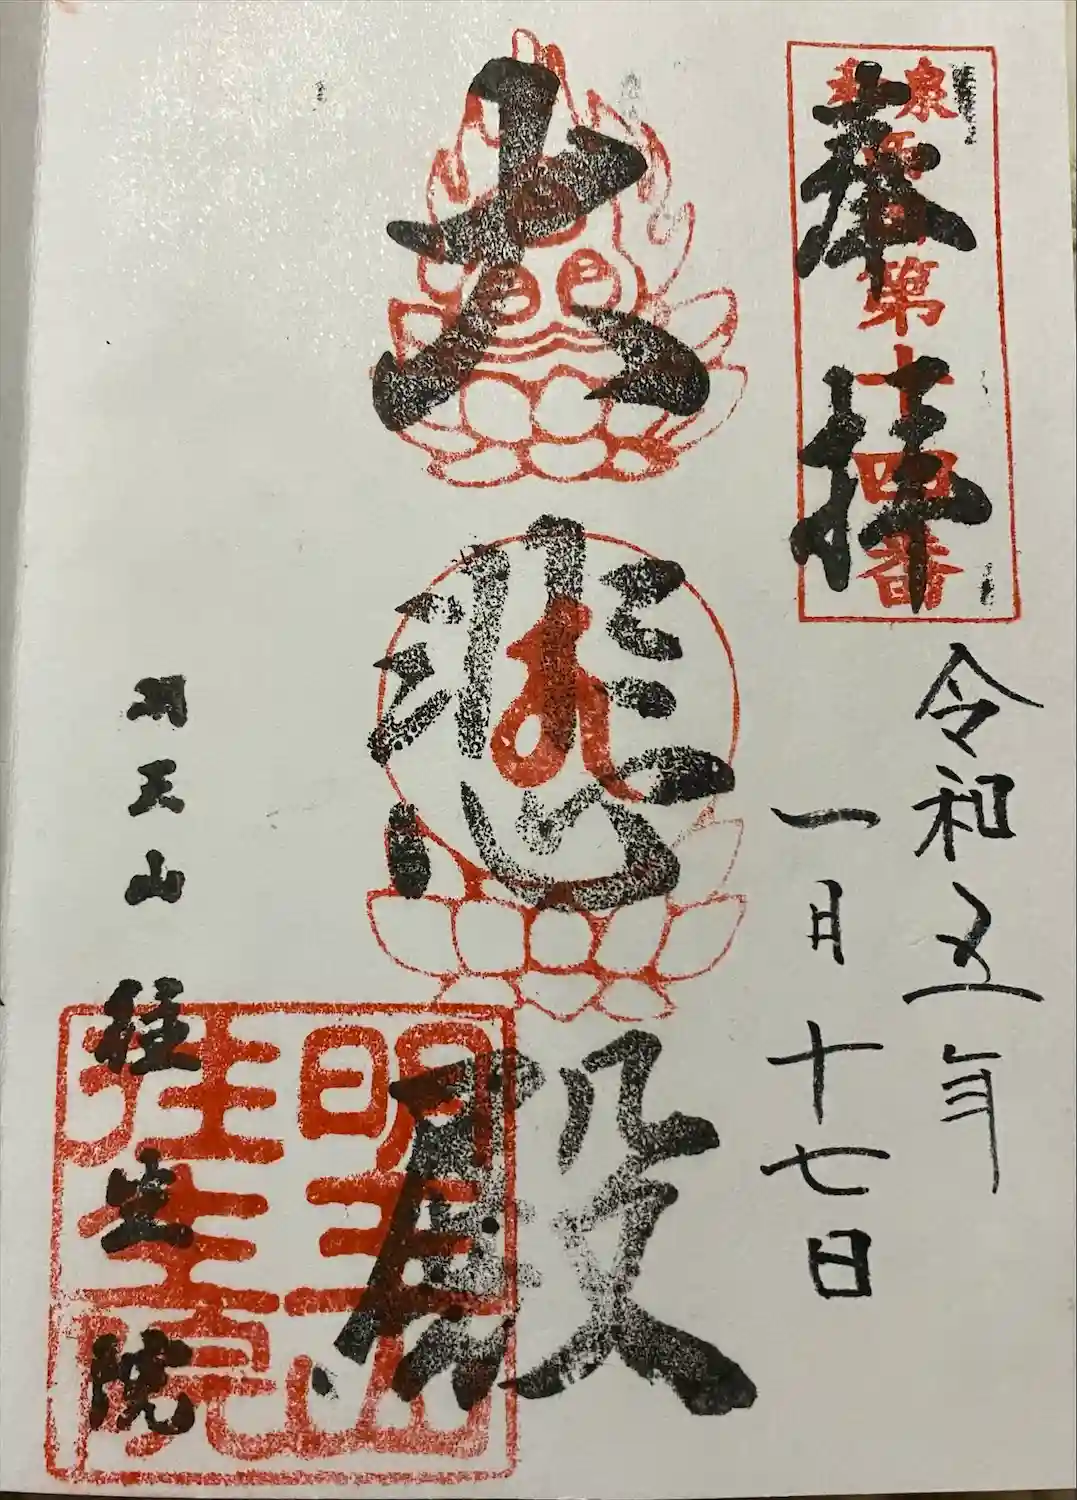 奉拝
泉
第十四番
令和五年
一月十七日
大悲殿
明王山 往生院
明王山
往生院